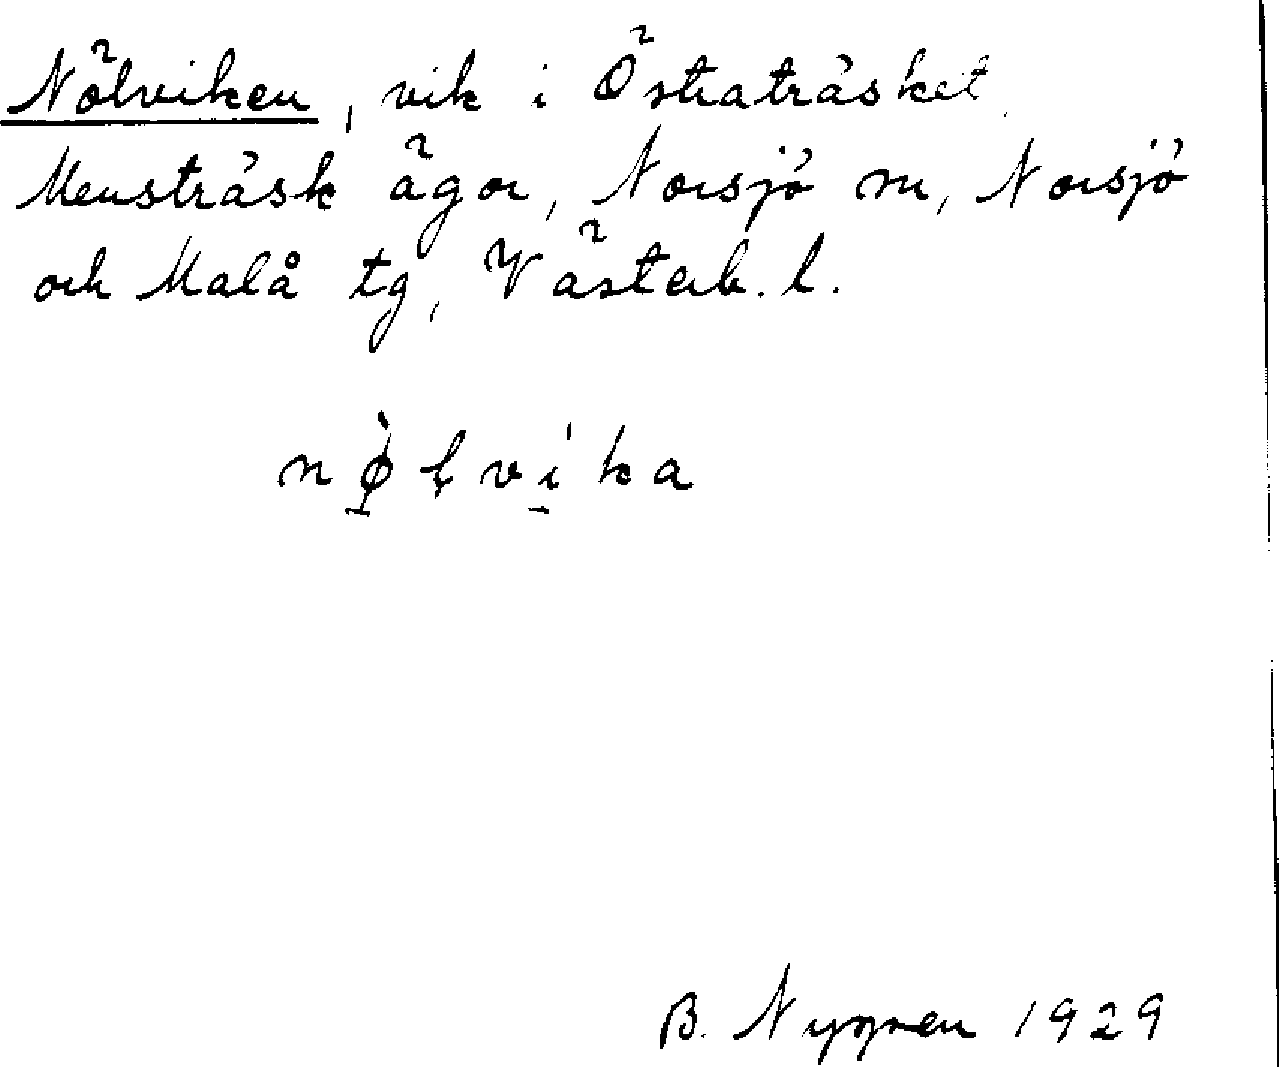 Nölviken, vik i Östraträsket
Mensträsk ägor, Norsjö sn, Norsjö
och Malå tg, Västerb. l.
nø̀lvika
B. Nygren 1929